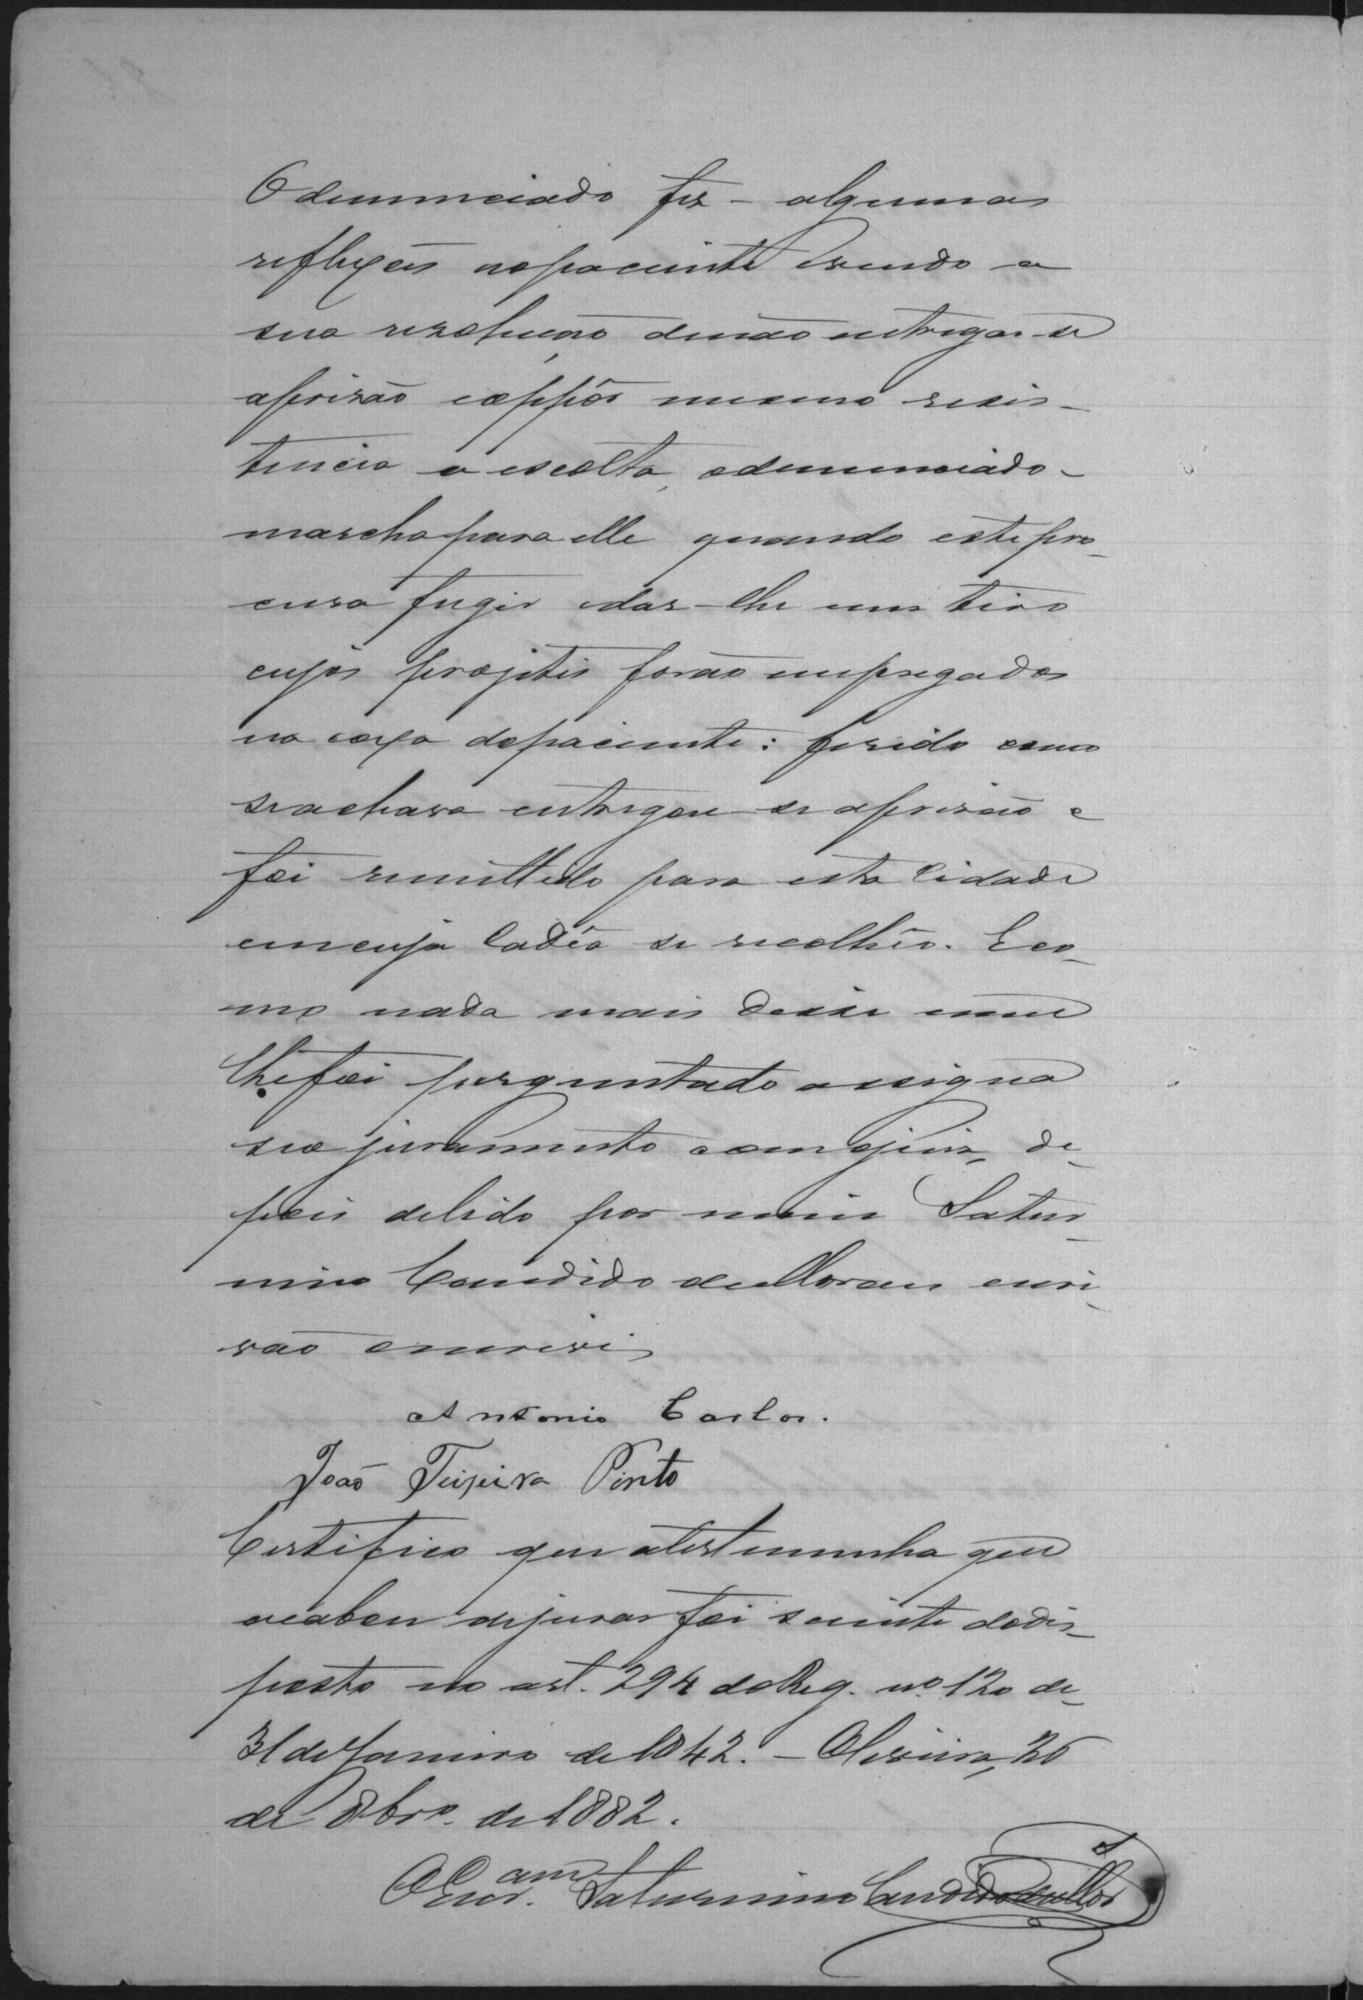 O denunciado fez - algumas
reflexões ao paciente vendo a
sua resolução de não entregar-se
a prizão e oppôr mesmo resis-
tencia a escolta, o denunciado -
marcha para elle quando este pro-
cura fugir e dar-lhe um tiro
cujos projetis forão empregados
na coxa do paciente: ferido como
se achava entregou-se a prizão e
foi remettido para esta Cidade
em cuja Cadêa se recolhêo. E co-
mo nada mais disse nem
lhe foi perguntado assigna
seo juramento com o juiz, de-
pois de lido por mim Satur-
nino Candido de Moraes escri-
vão o escrevi
Antonio Carlos.
João Teixeira Pinto
Certifico que a testemunha que
acabou de jurar foi sciente do dis-
posto no art. 294 do Reg. nº 120 de
31 de Janeiro de 1842. - Oliveira, 26
de 8brº. de 1882.
O Escram. Saturnino Candido de Mor